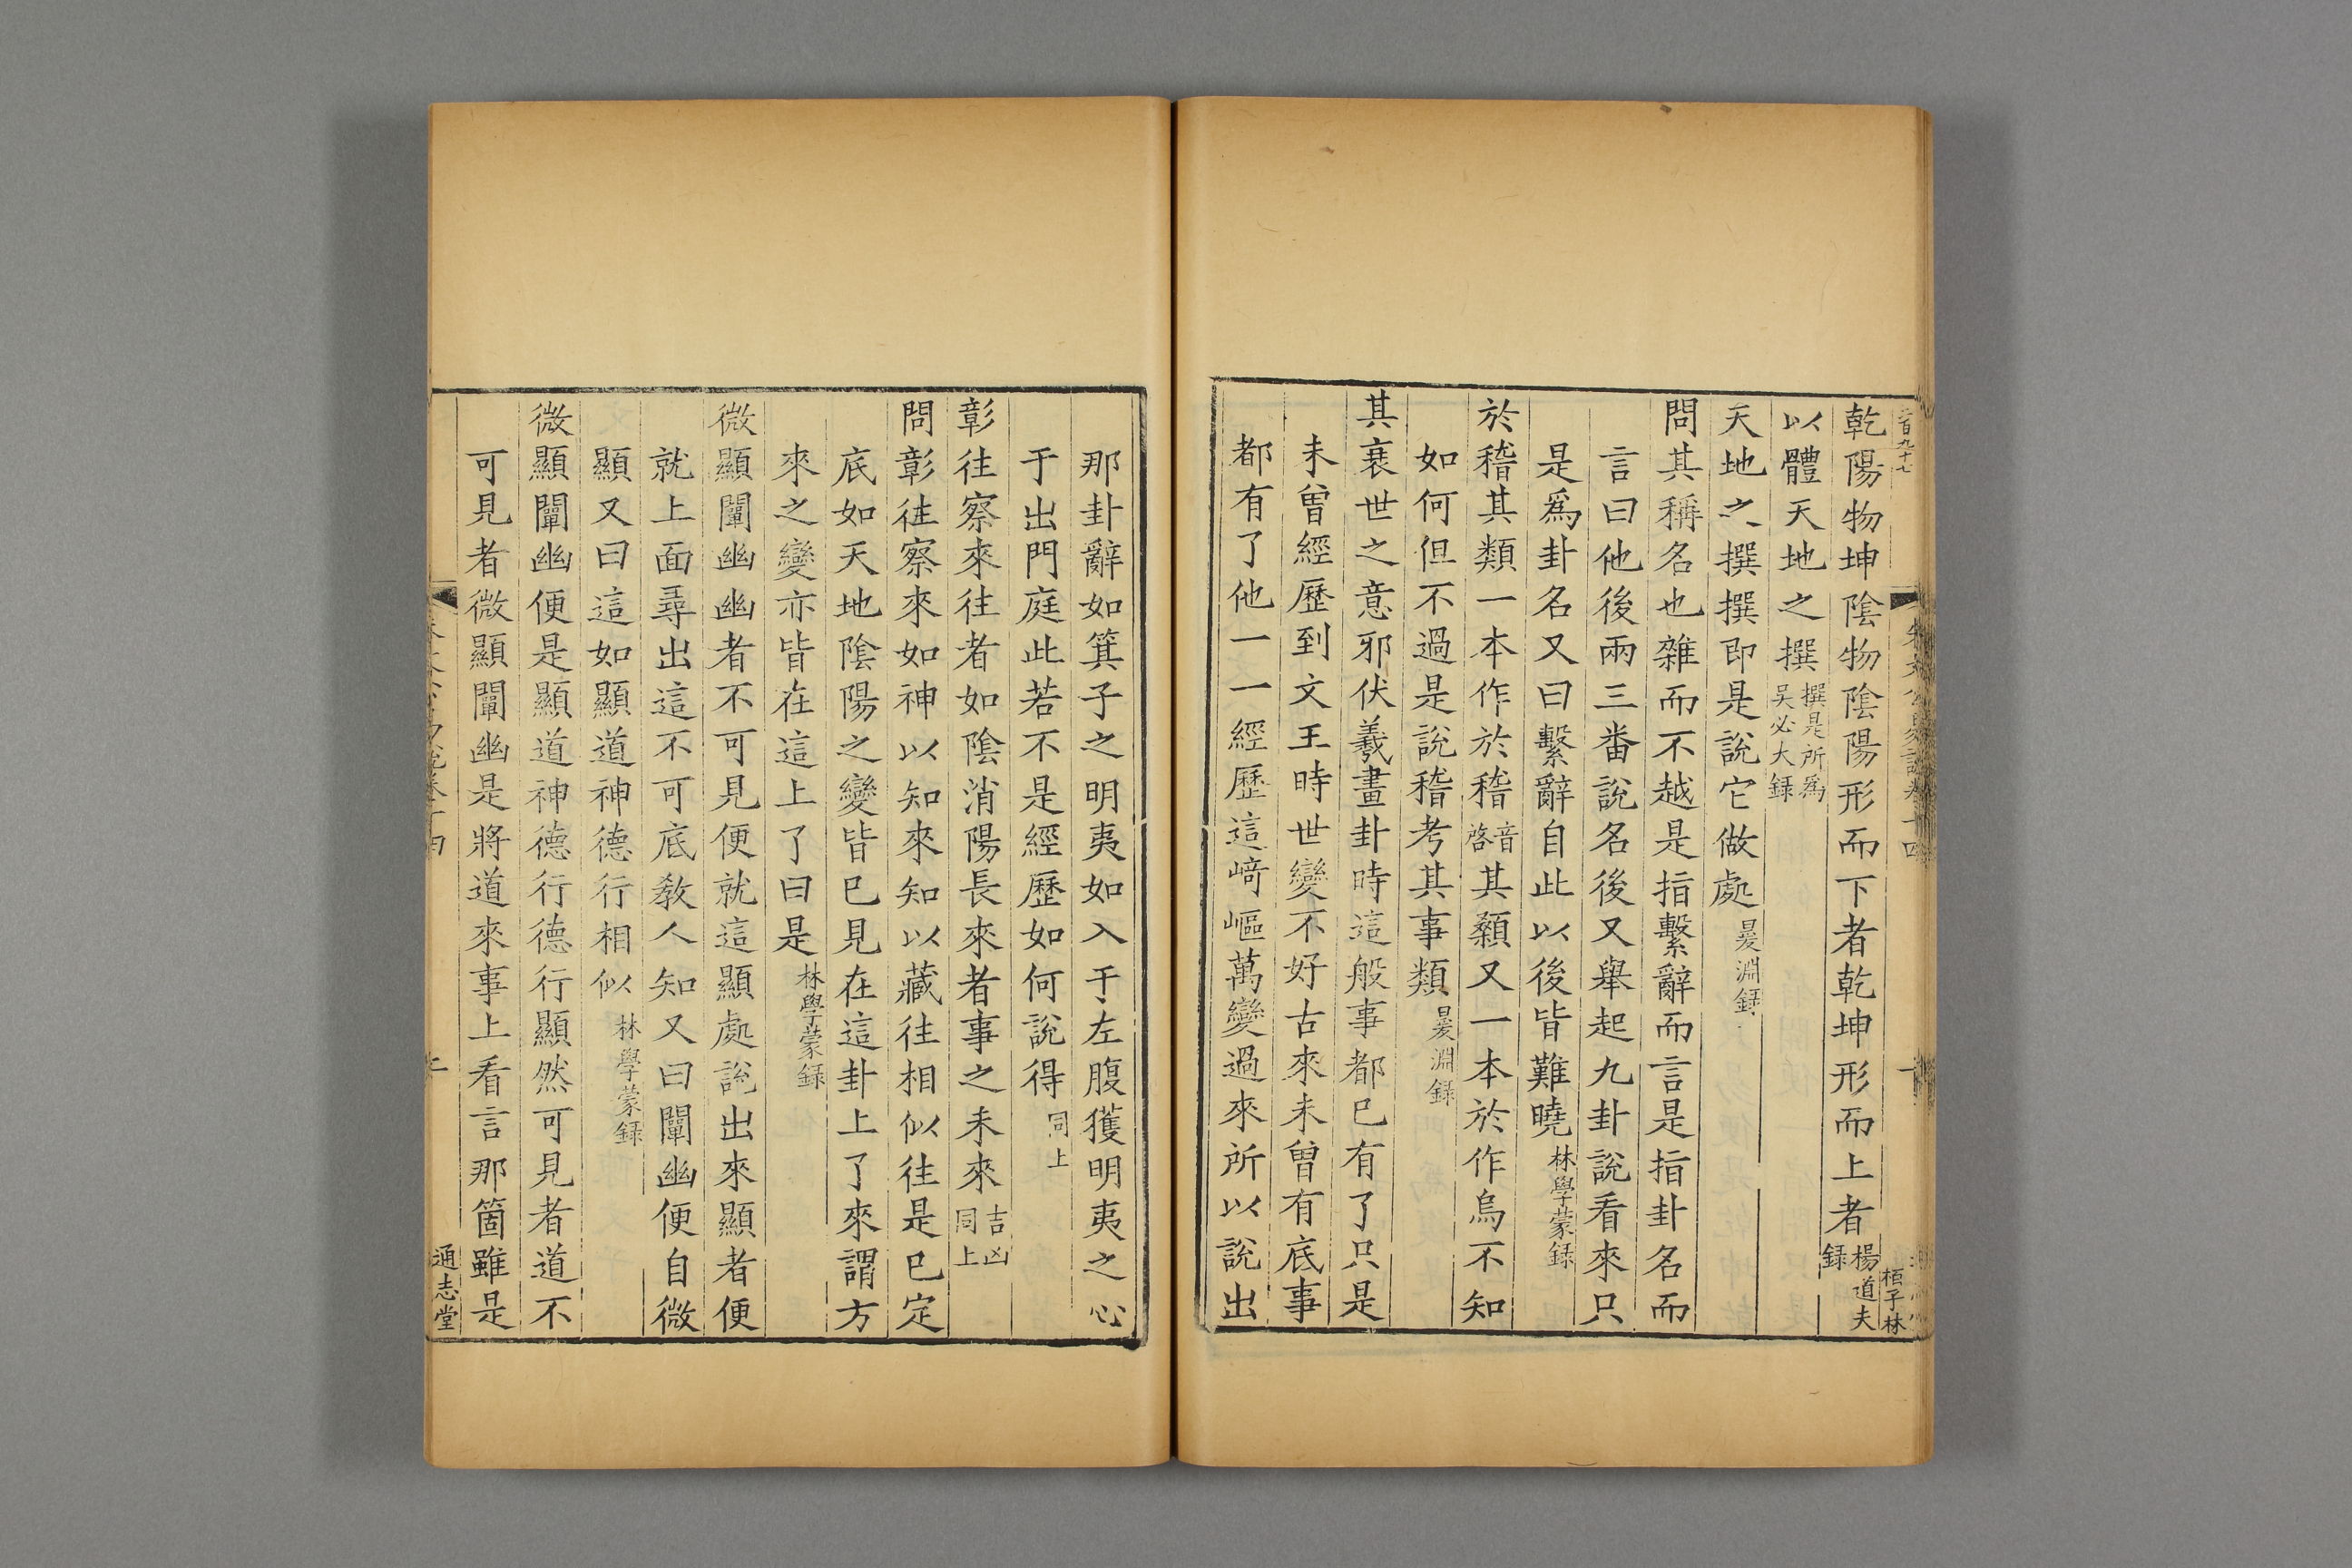 乾陽物坤陰物陰陽形而下者乾坤形而上者楊道夫錄
以體天地之撰撰是所爲吳必大錄
天地之撰撰即是說它做處㬊淵錄
問其稱名也雜而不越是指繫辭而言是指卦名而
言曰他後兩三番說名後又舉起九卦說看來只
是爲卦名又曰繫辭自此以後皆難曉林學蒙錄
於稽其類一本作於稽音啓其纇又一本於作烏不知
如何但不過是說稽考其事類㬊淵錄
其衰世之意邪伏羲畫卦時這般事都已有了只是
未曾經歷到文王時世變不好古來未曾有底事
都有了他一一經歷這﨑嶇萬變過來所以說出
那卦辭如箕子之明夷如入于左腹獲明夷之心
于出門庭此若不是經歷如何說得同上
彰往察來往者如陰消陽長來者事之未來吉凶同上
問彰徃察來如神以知來知以藏往相似往是已定
底如天地陰陽之變皆已見在這卦上了來謂方
來之變亦皆在這上了曰是林學蒙錄
微顯闡幽幽者不可見便就這顯處說出來顯者便
就上面尋出這不可底敎人知又曰闡幽便自微
顯又曰這如顯道神德行相似林學蒙錄
微顯闡幽便是顯道神德行德行顯然可見者道不
可見者微顯闡幽是將道來事上看言那箇雖是
通志堂